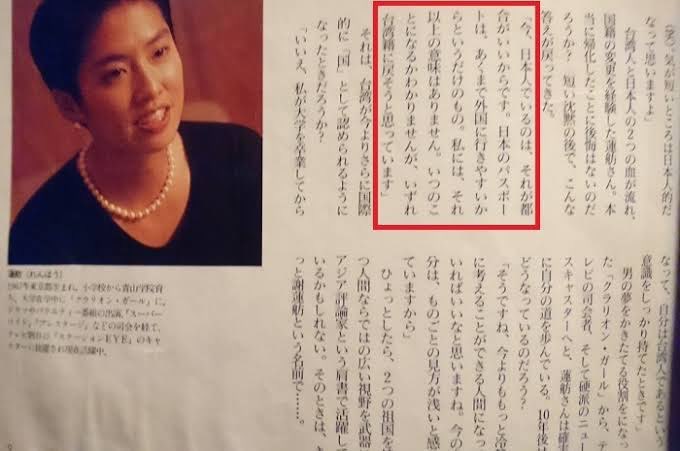 (笑)。気が短いところは日本人的だ
なって思いますよ」
台湾人と日本人の2つの血が流れ、
国籍の変更を経験した蓮舫さん。本
当に帰化したことに後悔はないのだ
ろうか? 短い沈黙の後で、こんな
答えが戻ってきた。
「今、日本人でいるのは、それが都
合がいいからです。日本のパスポー
トは、あくまで外国に行きやすいか
らというだけのもの。私には、それ
以上の意味はありません。いつのこ
とになるかわかりませんが、いずれ
台湾籍に戻そうと思っています」
それは、台湾が今よりさらに国際
的に「国」として認められるように
なったときだろうか?
「いいえ、私が大学を卒業してから
なって、自分は台湾人であるという
意識をしっかり持てたときです」
男の夢をかきたてる役割をになっ
た「クラリオン・ガール」から、テ
レビの司会者、そして硬派のニュー
スキャスターへと、蓮舫さんは確実
に自分の道を歩んでいる。10年後は
どうなっているのだろう?
「そうですね、今よりももっと冷
に考えることができる人間になっ
いればいいなと思いますね。今の
分は、ものごとの見方が浅いと感
ていますから」
ひょっとしたら、2つの祖国を
つ人間ならではの広い視野を武器
アジア評論家という肩書で活躍して
いるかもしれない。そのときは、き
っと謝蓮舫という名前で……。
蓮舫(れんほう)
1967年東京都生まれ。小学校から青山学院育
ち。大学在学中に「クラリオン・ガール」に。
ドラマやバラエティー番組の出演、「スーパー
などの司会を経て、
テレビ朝日の「ステーションEYE」のキャ
スターに抜擢され現在活躍中。